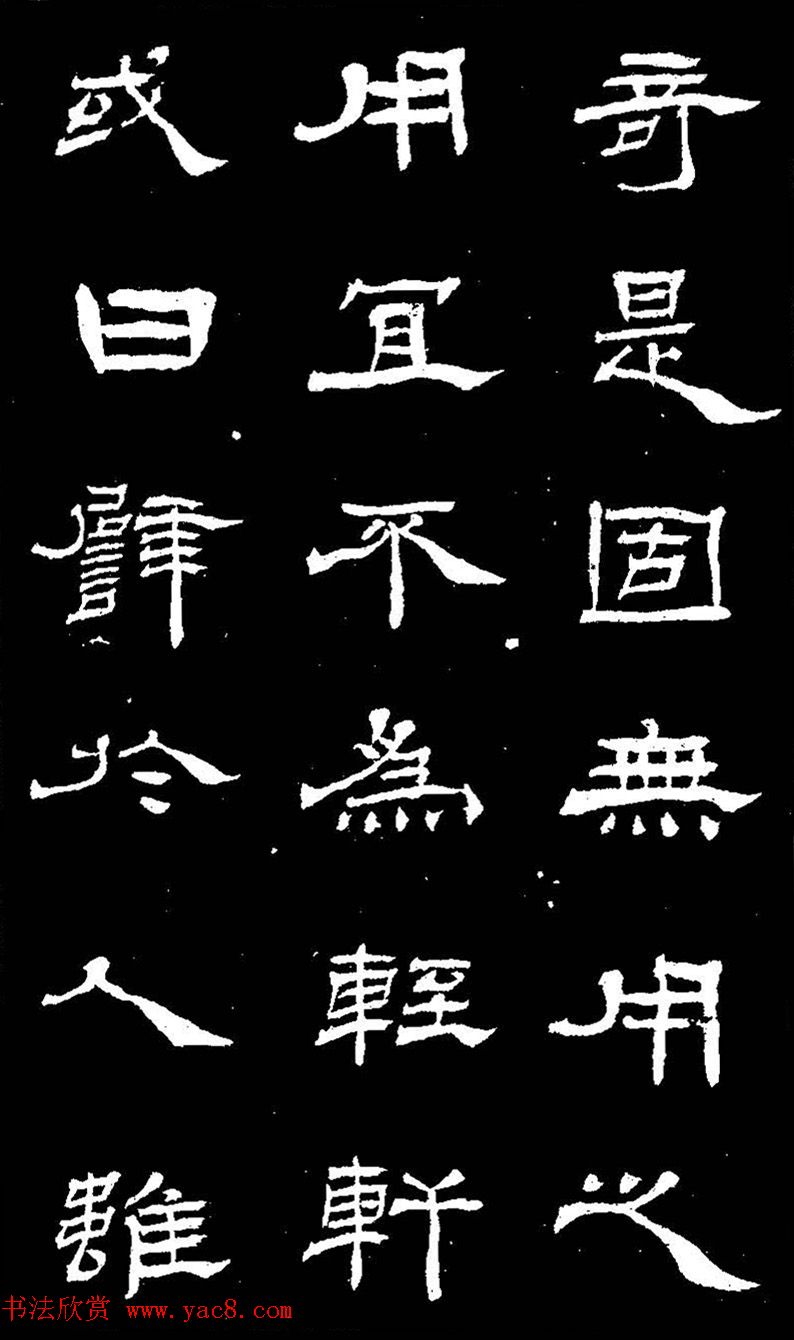 奇是固無用之
用宜不爲輊軒
或曰譬於人雖
书法欣赏 www.yac8.com